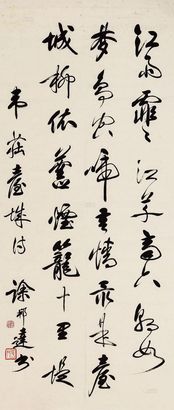 江雨霏〻江草齊六朝如
夢鳥空啼無情最是臺
城柳依舊煙籠十里堤
韋莊臺城詩 徐邦達書